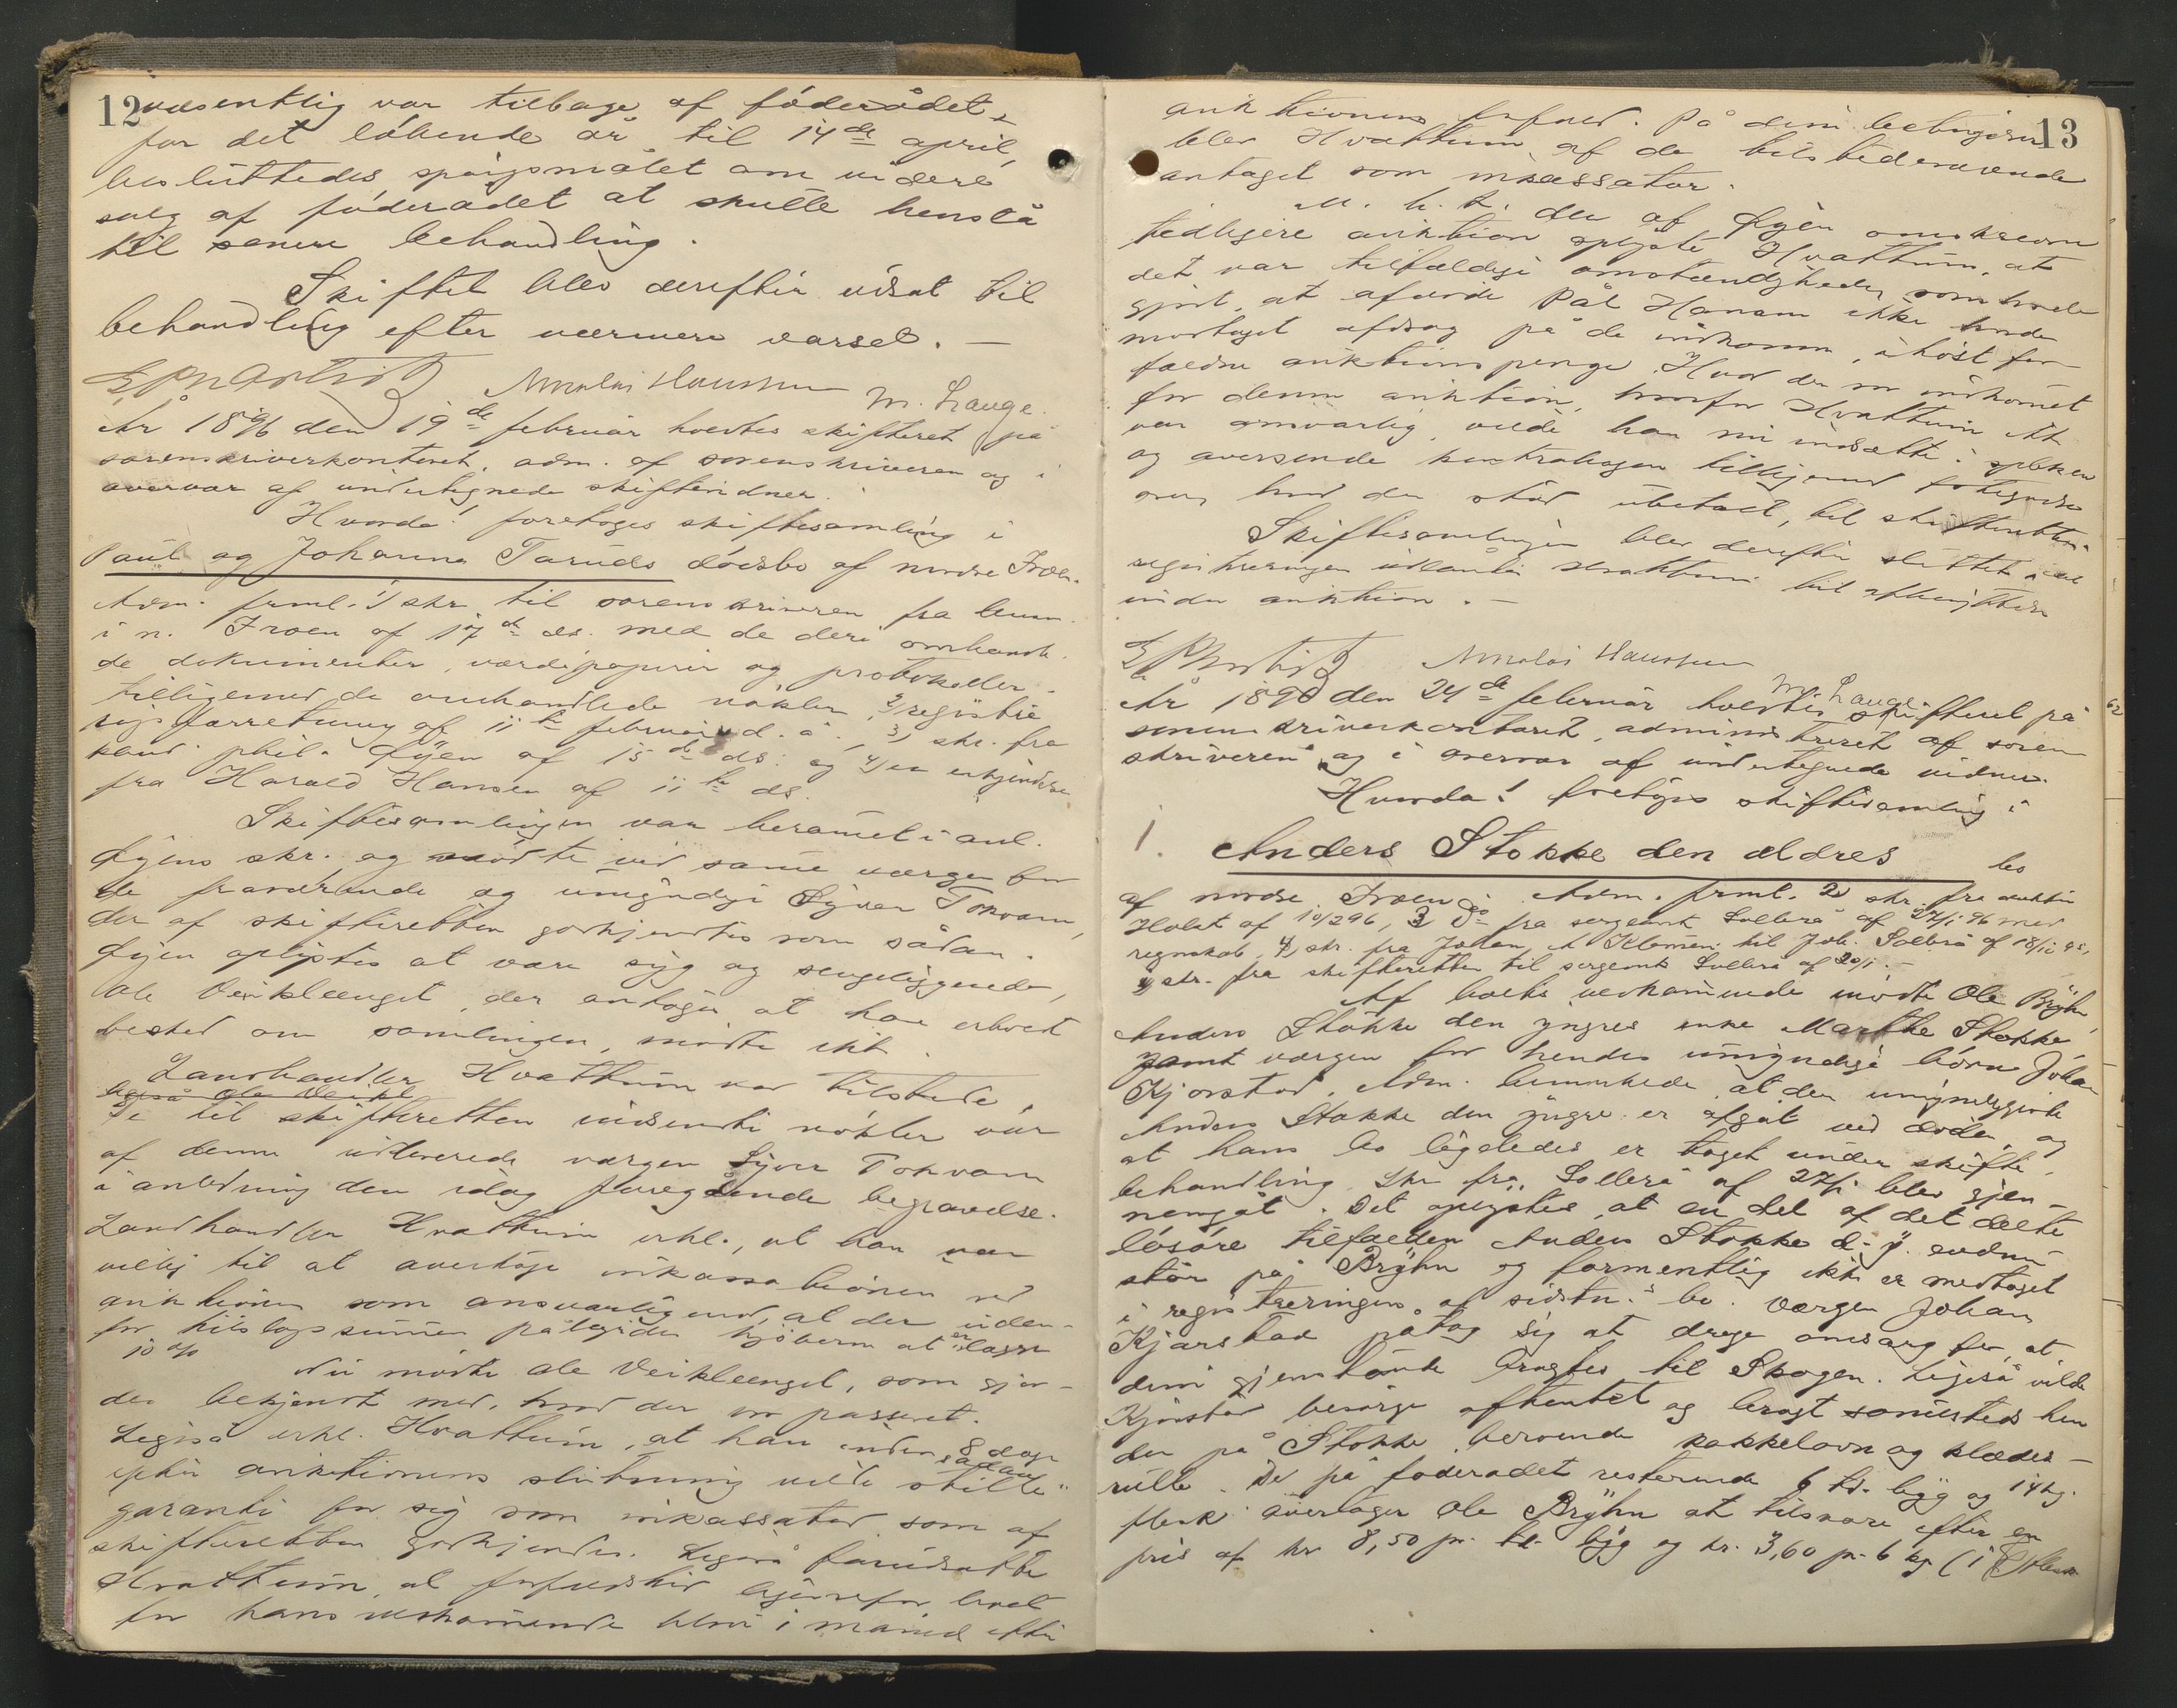 12
væsentlig var tilbage af föderådet
for det löbende år til 14de april,
besluttedes spörgsmålet om videre
salg af föderådet at skulle henstå
til senere behandling.
Skiftet blev derefter udsat til
behandling efter nærmere varsel. —
Nikolai Haugen M. Lauge.
År 1896 den 19de februar holdtes skifteret på
sorenskriverkontoret, adm. af sorenskriveren og i
overvær af undertegnede skiftevidner.
Hvorda! foretoges skiftesamling i
Paul og Johanna Taruds dödsbo af nordre Froen.
Adm. freml. 1 skr. til sorenskriveren fra lensm.
i n. Froen af 17de ds. med de deri omhandle-
de dokumenter, værdipapirer og protokoller
tilligemed de omhandlede nökler, 2) registre
ringsforretning af 11te februar d. å. 3) skr. fra
kand. phil. Öyen af 15de ds. og 4) en erkjendelse
fra Harald Hansen af 11te ds.
Skiftesamlingen var berammet i anl.
Öyens skr. og mödte ved samme værgen for
de fraværende og umyndige Syver Tokvam,
der af skifteretten godkjendtes som sådan.
Öyen oplystes at være syg og sengeliggende,
Ole Veikleenget, der antoges at have erholdt
besked om samlingen, mödte ikke.
Landhandler Hvattum var tilstede,
også Ole Veikl
De til skifteretten indsendte nökler var
af denne udleverede værgen Syver Tokvam
i anledning den idag foregående begravelse.
Landhandler Hvattum erkl., at han var
villig til at overtage inkassationen ved
auktionen som ansvarlig mod, at der uden-
for tilslagssummen pålægges kjöberne at erlægge
10 %
Nu mödte Ole Veikleenget, som gjor-
des bekjendt med, hvad der var passeret.
Ligeså erkl. Hvattum, at han inden 8 dage
efter auktionens slutning vilde stille sådan
garanti for sig som inkassator som af
skifteretten godkjendes. Ligeså forudsatte
Hvattum, at forfaldstid
for hans vedkommende blev 1 måned efter
13
auktionens forfald. På disse betingelser
blev Hvattum af de tilstedeværende
antaget som inkassator.
M. h. t. den af Öyen omskrevne
tidligere auktion oplyste Hvattum, at
det var tilfældige omstændigheder som havde
gjort, at afdöde Pål Hansen ikke havde
modtaget afdrag på de indkomne, i höst for-
faldne auktionspenge. Hvad der var indkommet
for denne auktion, hvorfor Hvattum
var ansvarlig, vilde han nu indsætte i
og oversende kontrabogen tilligemed fortegnelse
over, hvad der står ubetalt, til skifteretten.
Skiftesamlingen blev derefter sluttet
registreringen udlånt Hvattum til afbenyttelse
under auktion. —
Nikolai Haugen
M. Lauge
År 1896 den 24de februar holdtes skifteret på
sorenskriverkontoret, administreret af soren
skriveren og i overvær af undertegnede vidner.
Hvorda! foretoges skiftesamling i
1. Anders Stokke den ældres bo
af nordre Froen. Adm. freml. 2 skr. fra
Holet af 10/2 96, 3 do fra sergeant Sollerå af 27/1 96 med
regnskab, 4) skr. fra Johan A Klomen til Joh. Sollerå af 18/12 95,
5) skr. fra skifteretten til sergeant Sollerå af 20/1. —
Af boets vedkommende mödte Ole Bryhn,
Anders Stokke den yngres enke Marthe Stokke
samt værgen for hendes umyndige börn Johan
Kjorstad. Adm. bemærkede, at den umyndiggjorte
Anders Stokke den yngre er afgåt ved döden, og
at hans bo ligeledes er taget under skifte-
behandling. Skr. fra Sollerå af 27/1 blev gjen-
nemgåt. Det oplystes, at en del af det delte
lösöre tilfalden Anders Stokke d. y. endnu
står på Bryhn og formentlig ikke er medtaget
i registreringen af sidstn.s bo. Værgen Johan
Kjorstad påtog sig at drage omsorg for, at
disse gjenstande bragtes til Skogen. Ligeså vilde
Kjorstad besörge afhentet og bragt sammesteds hen
den på Stokke beroende kakkelovn og klædes-
rulle. De på föderådet resterende 6 td. byg og 14 kg.
flesk overtager Ole Bryhn at tilsvare efter en
pris af kr. 8,50 pr. td. byg og kr. 3,60 pr. 6 kg (1 flesk
62